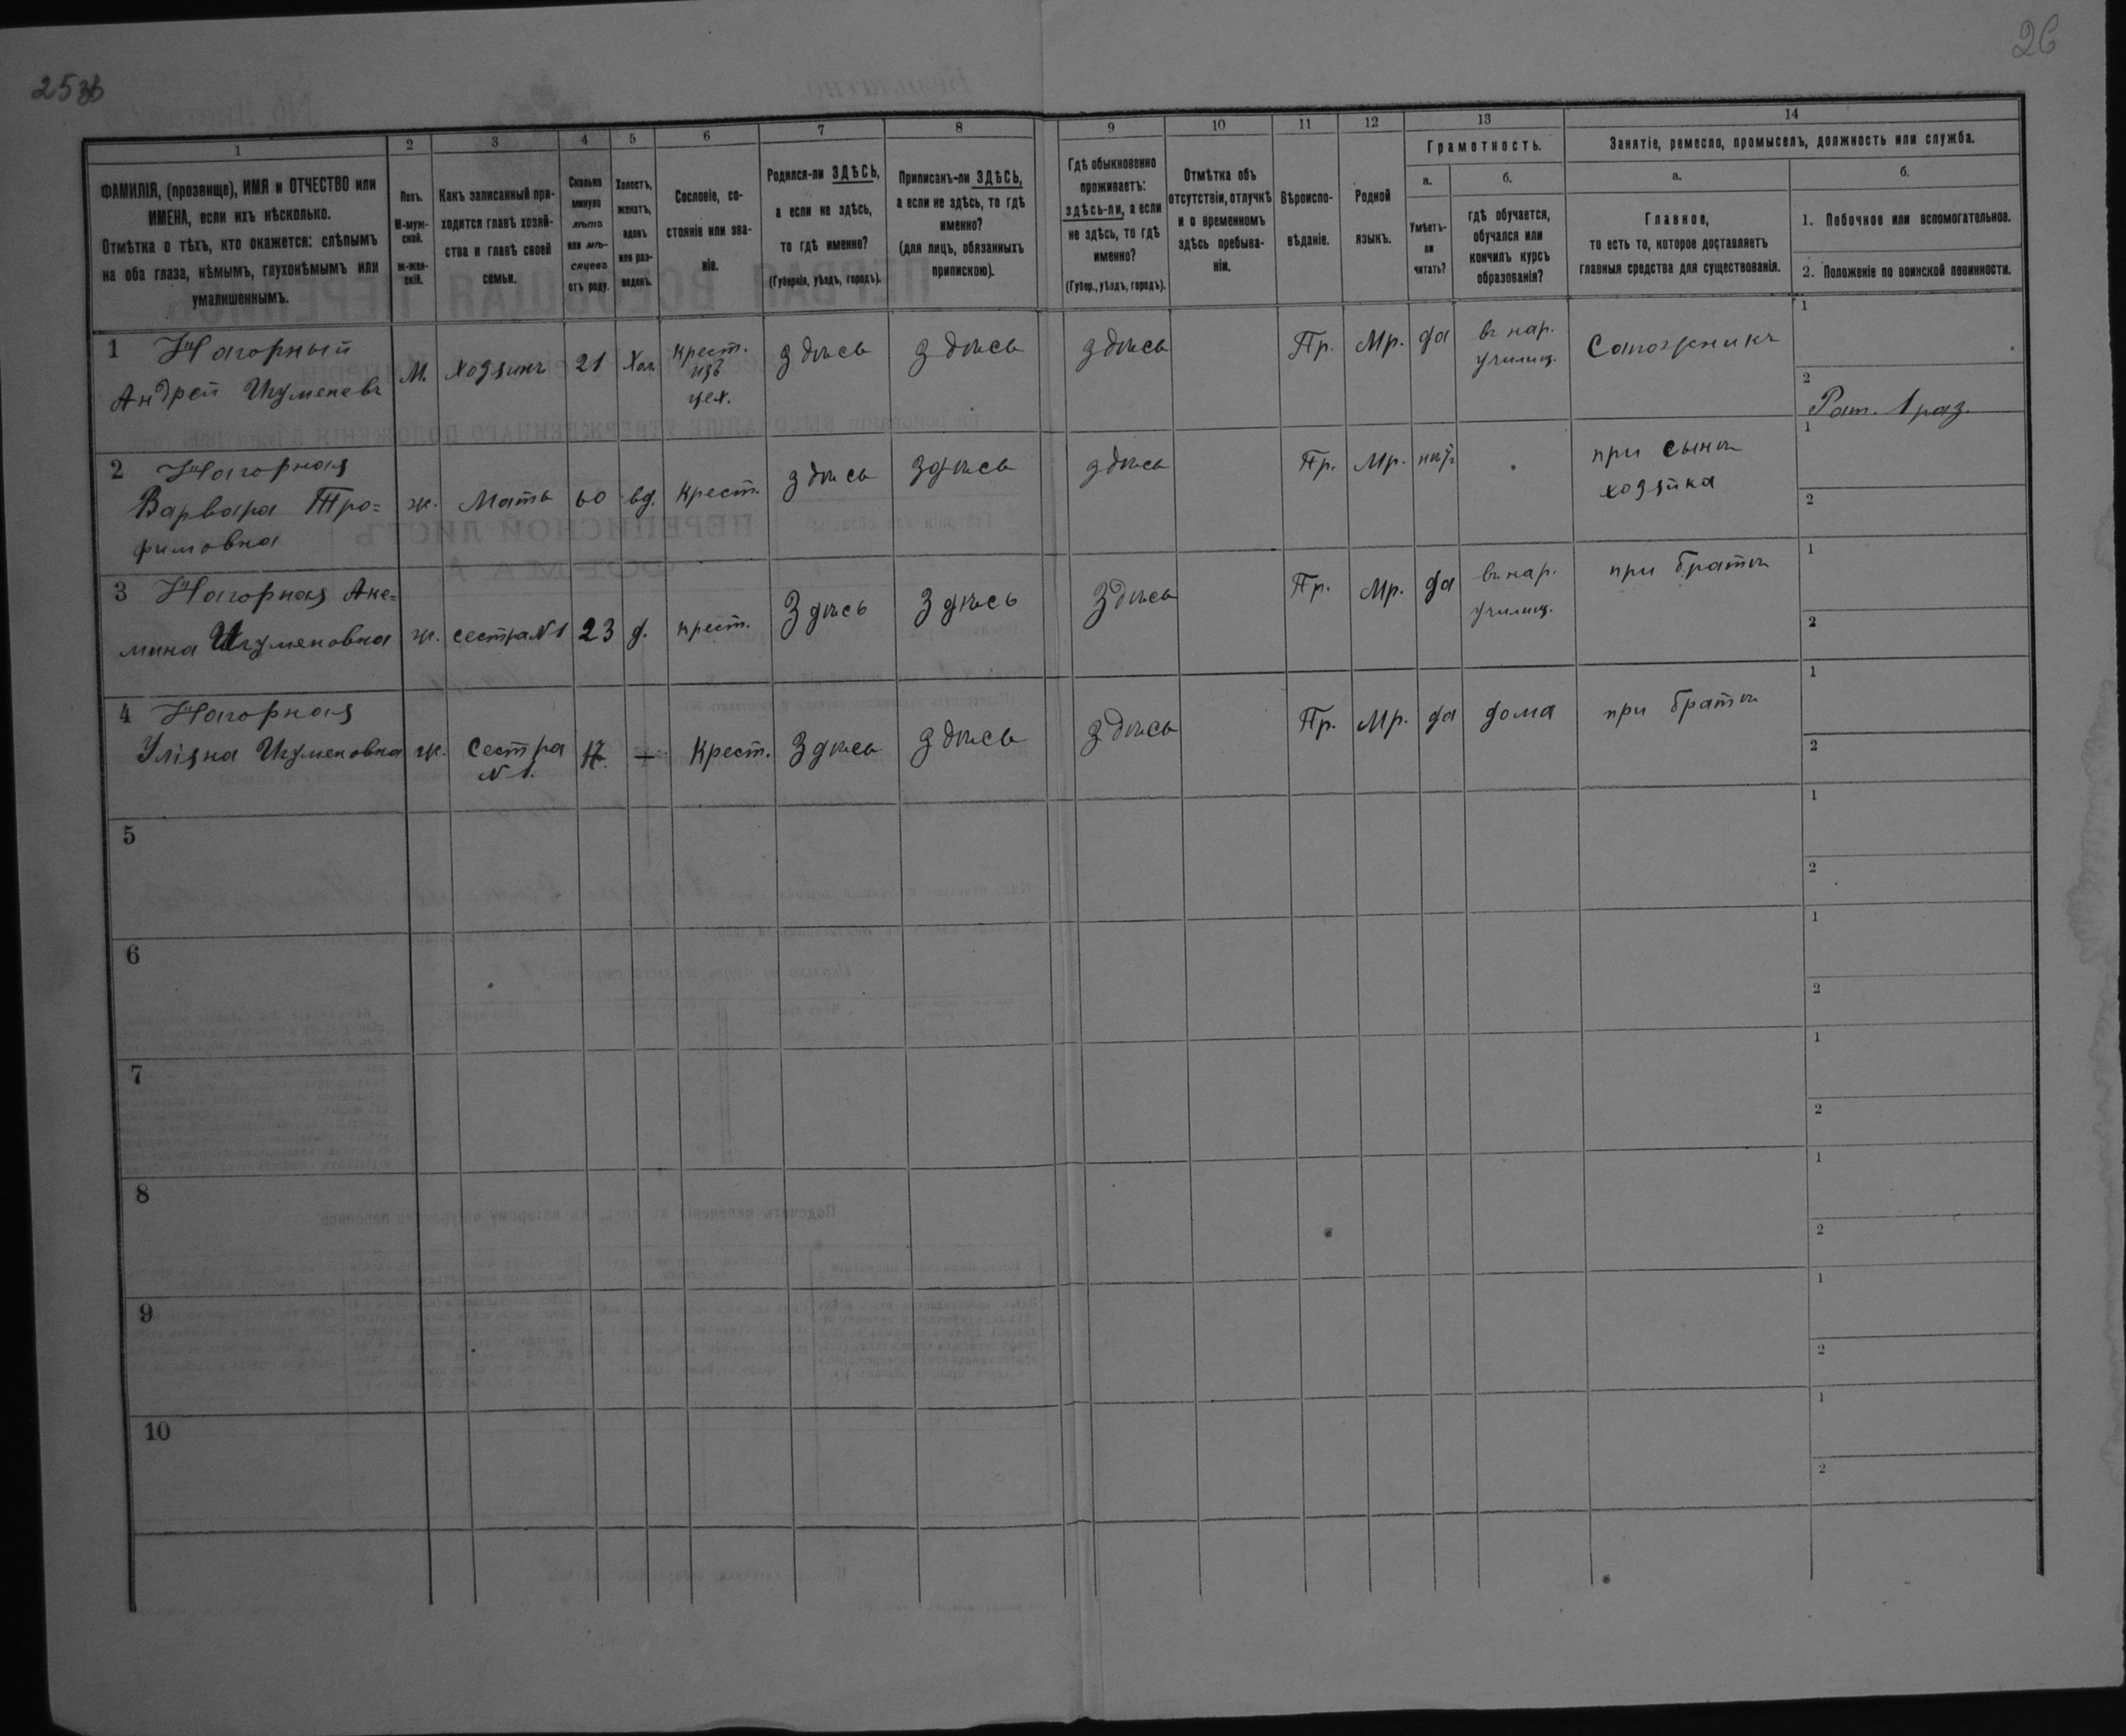 26
1
ФАМИЛІЯ, (прозвище), ИМЯ и ОТЧЕСТВО или
ИМЕНА, если ихъ нѣсколько.
Отмѣтка о тѣхъ, кто окажется: слѣпымъ
на оба глаза, нѣмымъ, глухонѣмымъ или
умалишеннымъ.
2
Полъ.
М-муж-
ской.
ж-жен-
скій.
3
Какъ записанный при-
ходится главѣ хозяй-
ства и главѣ своей
семьи.
4
Сколько
минуло
лѣтъ
или мѣ-
сяцевъ
отъ роду.
5
Холостъ,
женатъ,
вдовъ
или раз-
веденъ.
6
Сословіе, со-
стояніе или зва-
ніе.
7
Родился-ли ЗДѢСЬ,
а если не здѣсь,
то гдѣ именно?
(Губернія, уѣздъ, городъ).
8
Приписанъ-ли ЗДѢСЬ,
а если не здѣсь, то гдѣ
именно?
(для лицъ, обязанныхъ
припискою).
9
Гдѣ обыкновенно
проживаетъ:
здѣсь-ли, а если
не здѣсь, то гдѣ
именно?
(Губер., уѣздъ, городъ).
10
Отмѣтка объ
отсутствіи, отлучкѣ
и о временномъ
здѣсь пребыва-
ніи.
11
Вѣроиспо-
вѣданіе.
12
Родной
языкъ.
13
Грамотность.
а.
Умѣетъ-
ли
читать?
б.
гдѣ обучается,
обучался или
кончилъ курсъ
образованія?
14
Занятіе, ремесло, промыселъ, должность или служба.
а.
Главное,
то есть то, которое доставляетъ
главныя средства для существованія.
б.
1. Побочное или вспомогательное.
2. Положеніе по воинской повинности.
1 Нагорный
Андрей Игуменевъ
М.
хозяинъ
21
Хол.
крест.
изъ
цех.
здѣсь
здѣсь
здѣсь
Пр.
Мр.
да
въ нар.
училищ.
Сапожникъ
1
2
Рат. 1 раз.
2 Нагорная
Варвара Тро=
фимовна
ж.
Мать
60
вд.
крест.
здѣсь
здѣсь
здѣсь
Пр.
Мр.
нѣтъ
при сынѣ
1
2
3 Нагорная Аке=
мина Игуменовна
ж.
сестра №1
23
д.
крест.
Здѣсь
Здѣсь
Здѣсь
Пр.
Мр.
да
въ нар.
училищ.
при братѣ
1
2
4 Нагорная
Уліяна Игуменовна
ж.
Сестра
№ 1.
Крест.
Здѣсь
здѣсь
здѣсь
Пр.
Мр.
да
дома
при братѣ
1
2
5
1
2
6
1
2
7
1
2
8
1
2
9
1
2
10
1
2